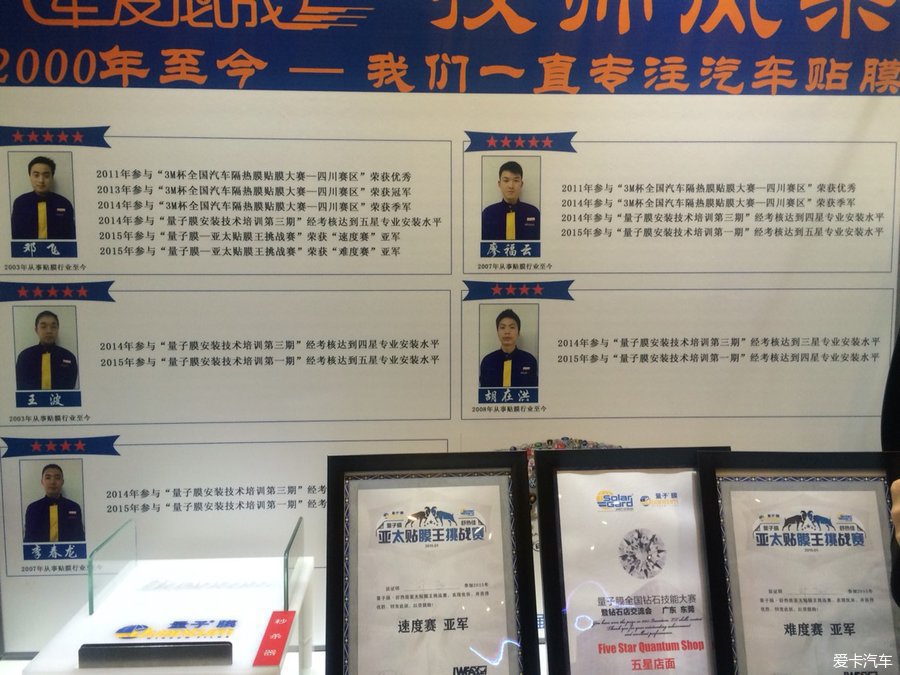 2000年至今 — 我们一直专注汽车贴膜
2011年参与“3M杯全国汽车隔热膜贴膜大赛—四川赛区”荣获优秀
2013年参与“3M杯全国汽车隔热膜贴膜大赛—四川赛区”荣获冠军
2014年参与“3M杯全国汽车隔热膜贴膜大赛—四川赛区”荣获季军
2014年参与“量子膜安装技术培训第三期”经考核达到四星专业安装水平
2015年参与“量子膜—亚太贴膜王挑战赛”荣获“速度赛”亚军
2015年参与“量子膜—亚太贴膜王挑战赛”荣获“难度赛”亚军
邓飞
2003年从事贴膜行业至今
2011年参与“3M杯全国汽车隔热膜贴膜大赛—四川赛区”荣获优秀
2014年参与“3M杯全国汽车隔热膜贴膜大赛—四川赛区”荣获季军
2014年参与“量子膜安装技术培训第三期”经考核达到四星专业安装水平
2015年参与“量子膜安装技术培训第一期”经考核达到五星专业安装水平
廖福云
2007年从事贴膜行业至今
2014年参与“量子膜安装技术培训第三期”经考核达到四星专业安装水平
2015年参与“量子膜安装技术培训第一期”经考核达到五星专业安装水平
王波
2003年从事贴膜行业至今
2014年参与“量子膜安装技术培训第三期”经考核达到三星专业安装水平
2015年参与“量子膜安装技术培训第一期”经考核达到四星专业安装水平
胡在洪
2008年从事贴膜行业至今
2014年参与“量子膜安装技术培训第三期”经考
2015年参与“量子膜安装技术培训第一期”经考
李春龙
2007年从事贴膜行业至今
量子膜
秒杀器
量子膜
亚太贴膜王挑战赛
速度赛 亚军
Solar Gard
量子膜
量子膜全国钻石技能大赛
暨钻石店交流会 广东 东莞
Five Star Quantum Shop
五星店面
量子膜 舒热佳
亚太贴膜王挑战赛
难度赛 亚军
爱卡汽车